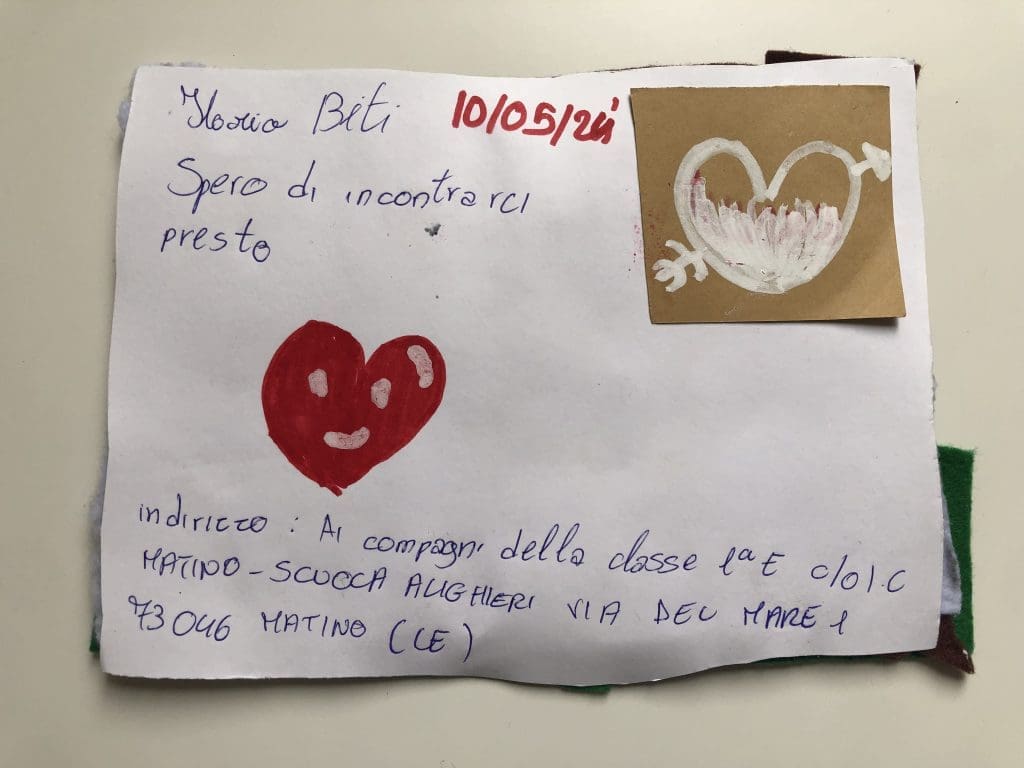 Ilaria Biti 10/05/24
Spero di incontrarci
presto
indirizzo : Ai compagni della classe 1ª E c/o I.C
MATINO - SCUOLA ALIGHIERI VIA DEL MARE 1
73046 MATINO (LE)